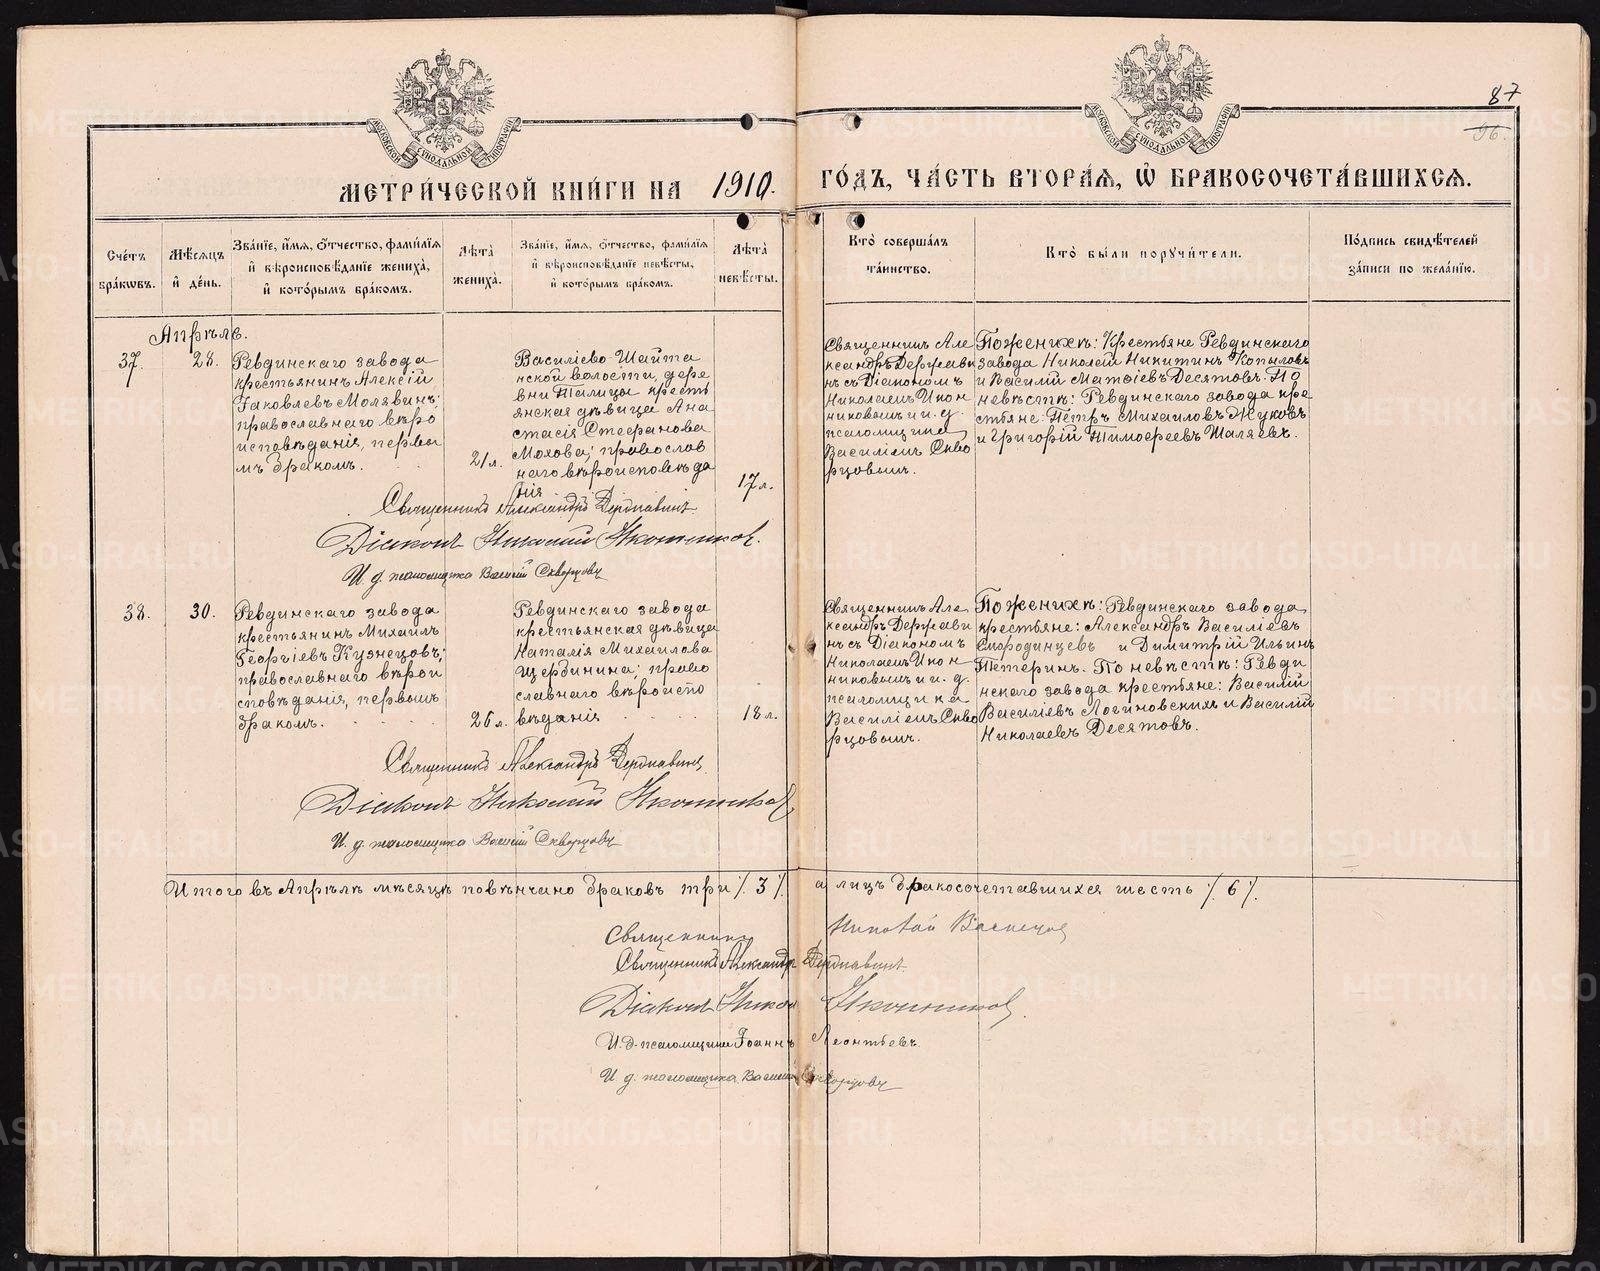 87
96.
МОСКОВСКОЙ СѴНОДАЛЬНОЙ ТИПОГРАФІИ
МОСКОВСКОЙ СѴНОДАЛЬНОЙ ТИПОГРАФІИ
МЕТРИ́ЧЕСКОЙ КНИ́ГИ НА 1910. ГО́ДЪ, ЧА́СТЬ ВТОРА́Ѧ, Ѽ БРАКОСОЧЕТА́ВШИХСѦ.
Сче́тъ
бра́кωвъ.
Мѣ́сѧцъ
и҆ де́нь.
Зва́нїе, и҆́мѧ, ѻ҆́тчество, фами́лїѧ
и҆ вѣроисповѣ́данїе жениха̀,
и҆ кото́рымъ бра́комъ.
Лѣ́та
жениха̀.
Зва́нїе, и҆́мѧ, ѻ҆́тчество, фами́лїѧ
и҆ вѣроисповѣ́данїе невѣ́сты,
и҆ кото́рымъ бра́комъ.
Лѣ́та
невѣ́сты.
Кто̀ соверша́лъ
та́инство.
Кто̀ бы́ли поручи́тели.
По́дпись свидѣ́телей
за́писи по жела́нїю.
Апрѣль.
37.
28.
Ревдинскаго завода
крестьянинъ Алексій
Іаковлевъ Молявинъ;
православнаго вѣро
исповѣданія, первы
мъ бракомъ.
21 л.
Василіево-Шайта
нской волости, дере
вни Талицы кресть
янская дѣвица Ана
стасія Стефанова
Мохова; православ
наго вѣроисповѣда
нія
17 л.
Священникъ Але
ксандръ Держави
нъ съ Діакономъ
Николаемъ Икон
никовымъ и и. д.
псаломщика
Василіемъ Скво
рцовымъ.
По женихѣ: Крестьяне Ревдинскаго
завода Николай Никитинъ Копыловъ
и Василій Матѳіевъ Десятовъ. По
невѣстѣ: Ревдинскаго завода кре
стьяне: Петръ Михаиловъ Жуковъ
и Григорій Тимоѳеевъ Шаляевъ.
Священникъ Александръ Державинъ
Діаконъ Николай Иконниковъ.
И. д. псаломщика Василій Скворцовъ
38.
30.
Ревдинскаго завода
крестьянинъ Михаилъ
Георгіевъ Кузнецовъ;
православнаго вѣрои
сповѣданія, первымъ
бракомъ.
26 л.
Ревдинскаго завода
крестьянская дѣвица
Наталія Михаилова
Щербинина; право
славнаго вѣроиспо
вѣданія
18 л.
Священникъ Але
ксандръ Держави
нъ съ Діакономъ
Николаемъ Икон
никовымъ и и. д.
псаломщика
Василіемъ Скво
рцовымъ.
По женихѣ: Ревдинскаго завода
крестьяне: Александръ Василіевъ
Смородинцевъ и Димитрій Ильинъ
Тетеринъ. По невѣстѣ: Ревди
нскаго завода крестьяне: Василій
Василіевъ Логиновскихъ и Василій
Николаевъ Десятовъ.
Священникъ Александръ Державинъ
Діаконъ Николай Иконниковъ
И. д. псаломщика Василій Скворцовъ
Итого въ Апрѣлѣ мѣсяцѣ повѣнчано браковъ три /. 3 /. а лицъ бракосочетавшихся шесть /. 6 /.
Священникъ Николай
Священникъ Александръ Державинъ
Діаконъ Никол Иконниковъ.
И. д. псаломщика Іоаннъ Леонтьевъ.
И. д. псаломщика Василій Скворцовъ
METRIKI.GASO-URAL.RU